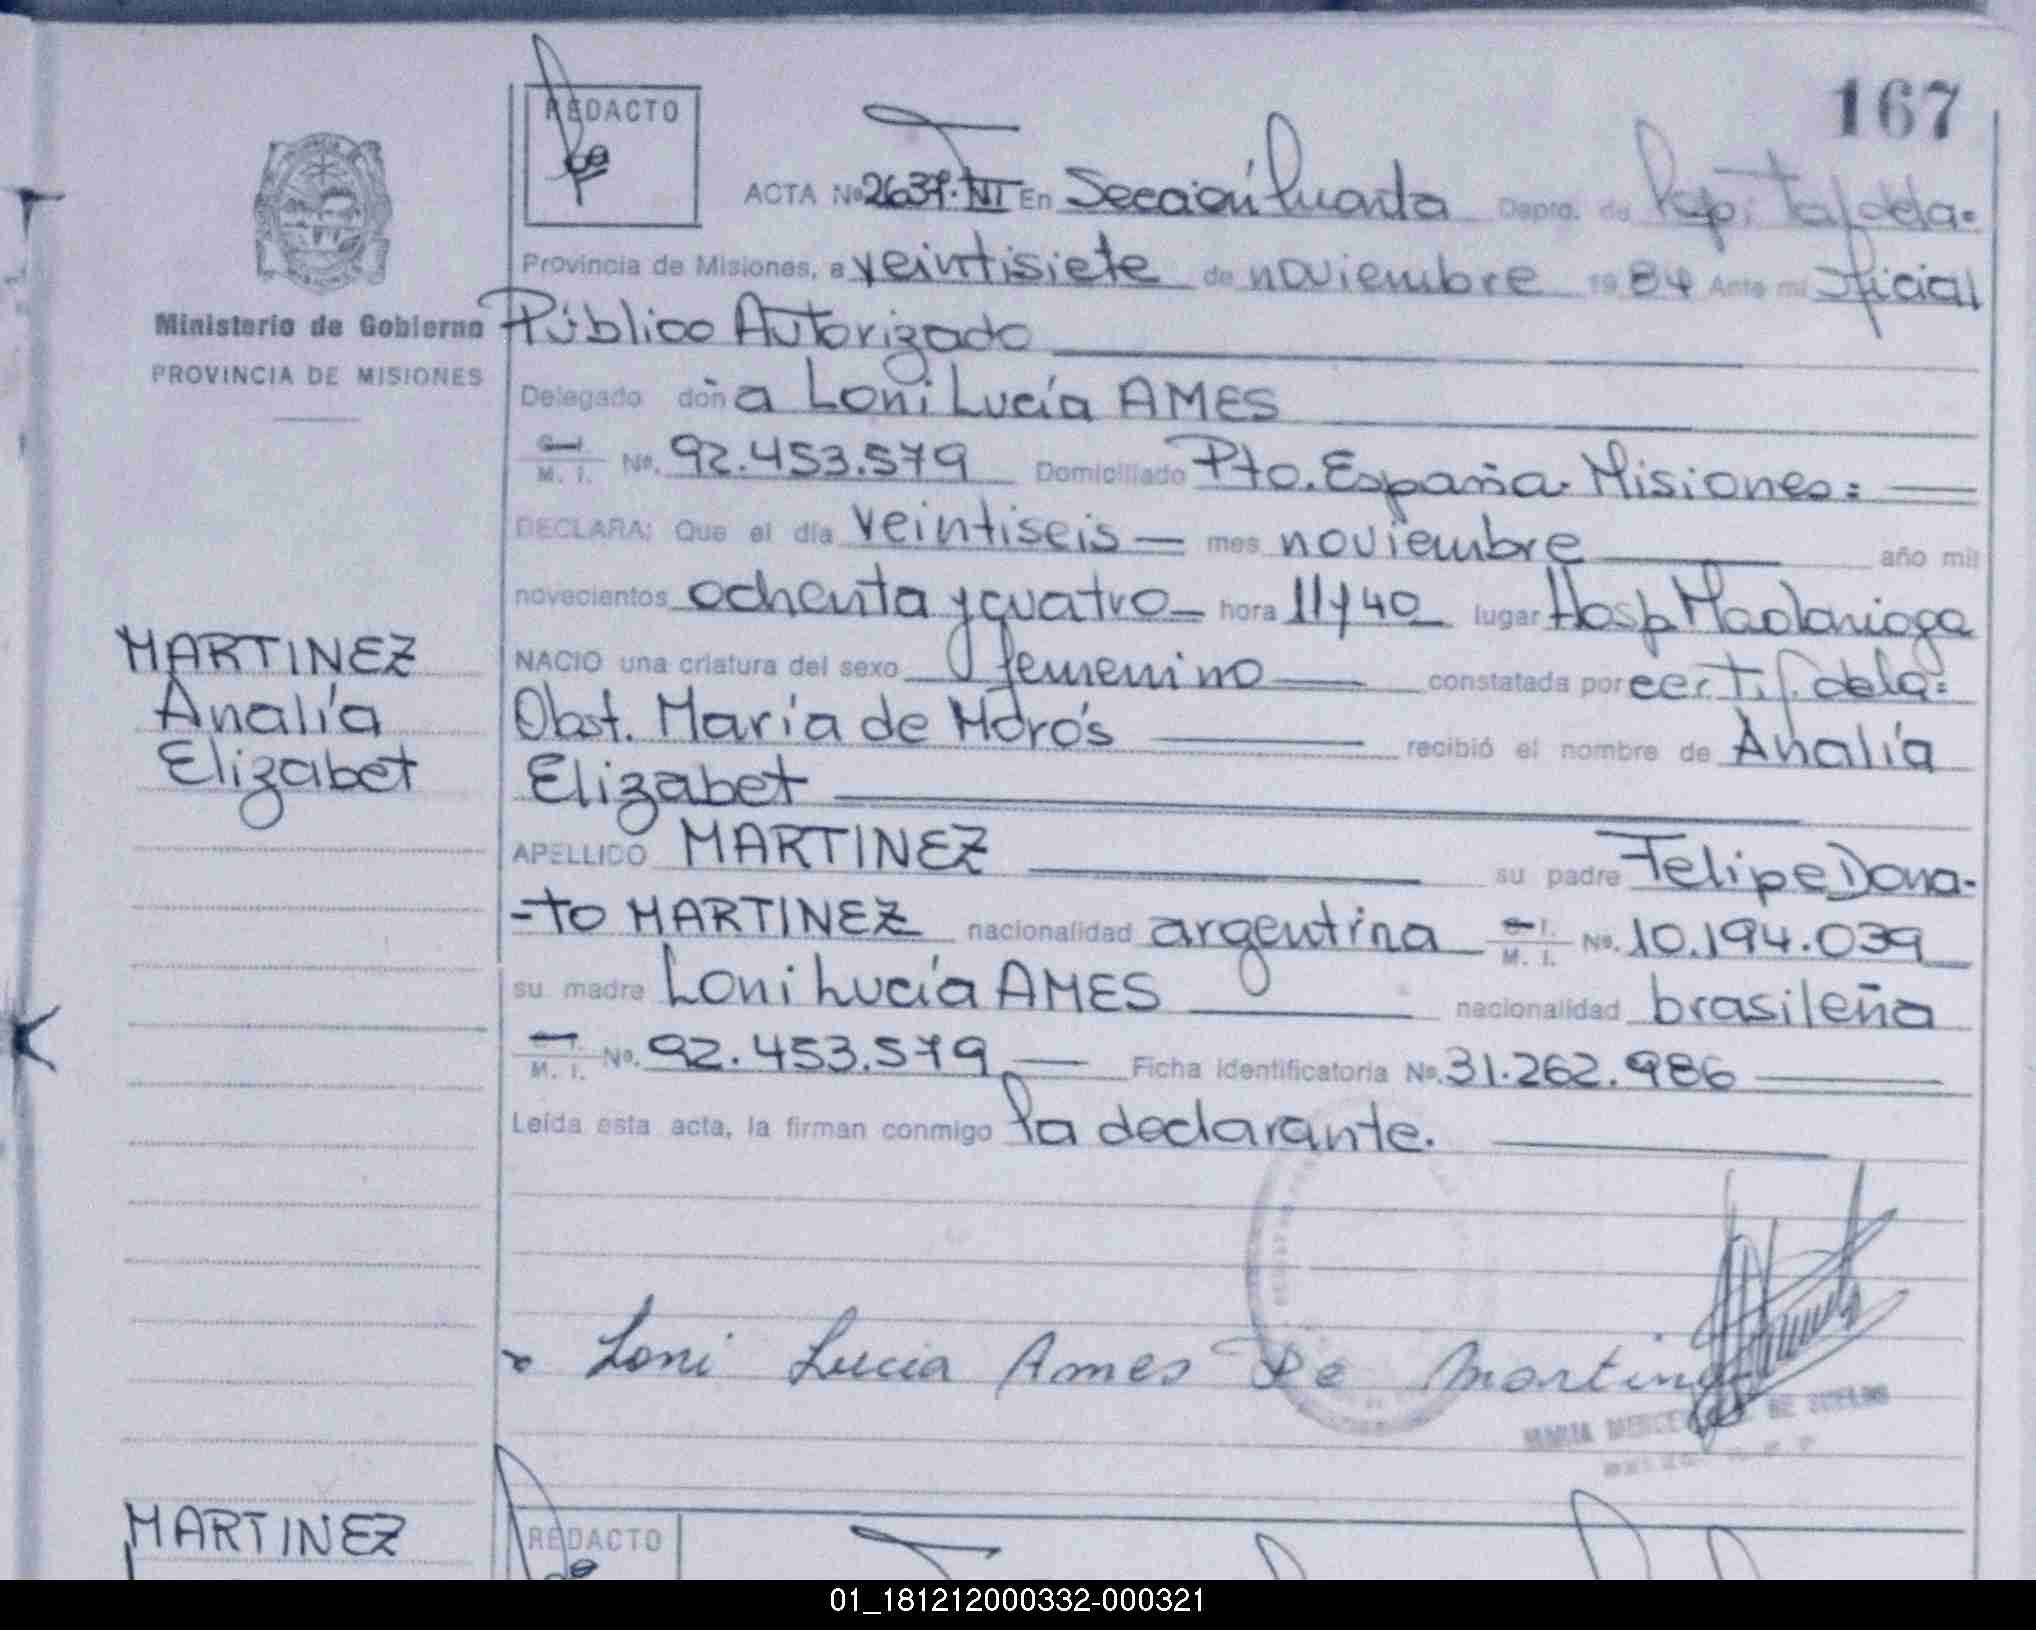 167
REDACTO
ACTA Nº 2637·VII En Sección Cuarta Depto. de Capital de la-
Provincia de Misiones, a veintisiete de noviembre 1984 Ante mi Oficial
Ministerio de Gobierno
PROVINCIA DE MISIONES
Público Autorizado
Delegado doña Loni Lucía AMES
C. I. M. I. Nº. 92.453.579 Domiciliado Pto. España. Misiones.=
DECLARA: Que el día veintiseis mes noviembre año mil
novecientos ochenta y cuatro hora 11 y 40 lugar Hosp Madariaga
MARTINEZ
Analía
Elizabet
NACIO una criatura del sexo femenino constatada por certif. de la=
Obst. María de Morós recibió el nombre de Analía
Elizabet
APELLIDO MARTINEZ su padre Felipe Dona-
-to MARTINEZ nacionalidad argentina M. I. Nº. 10.194.039
su madre Loni Lucía AMES nacionalidad brasileña
M. I. Nº. 92.453.579 Ficha identificatoria Nº. 31.262.986
Leída esta acta, la firman conmigo la declarante.
Loni Lucia Ames De Martinez
MARIA
MARTINEZ
REDACTO
01_181212000332-000321